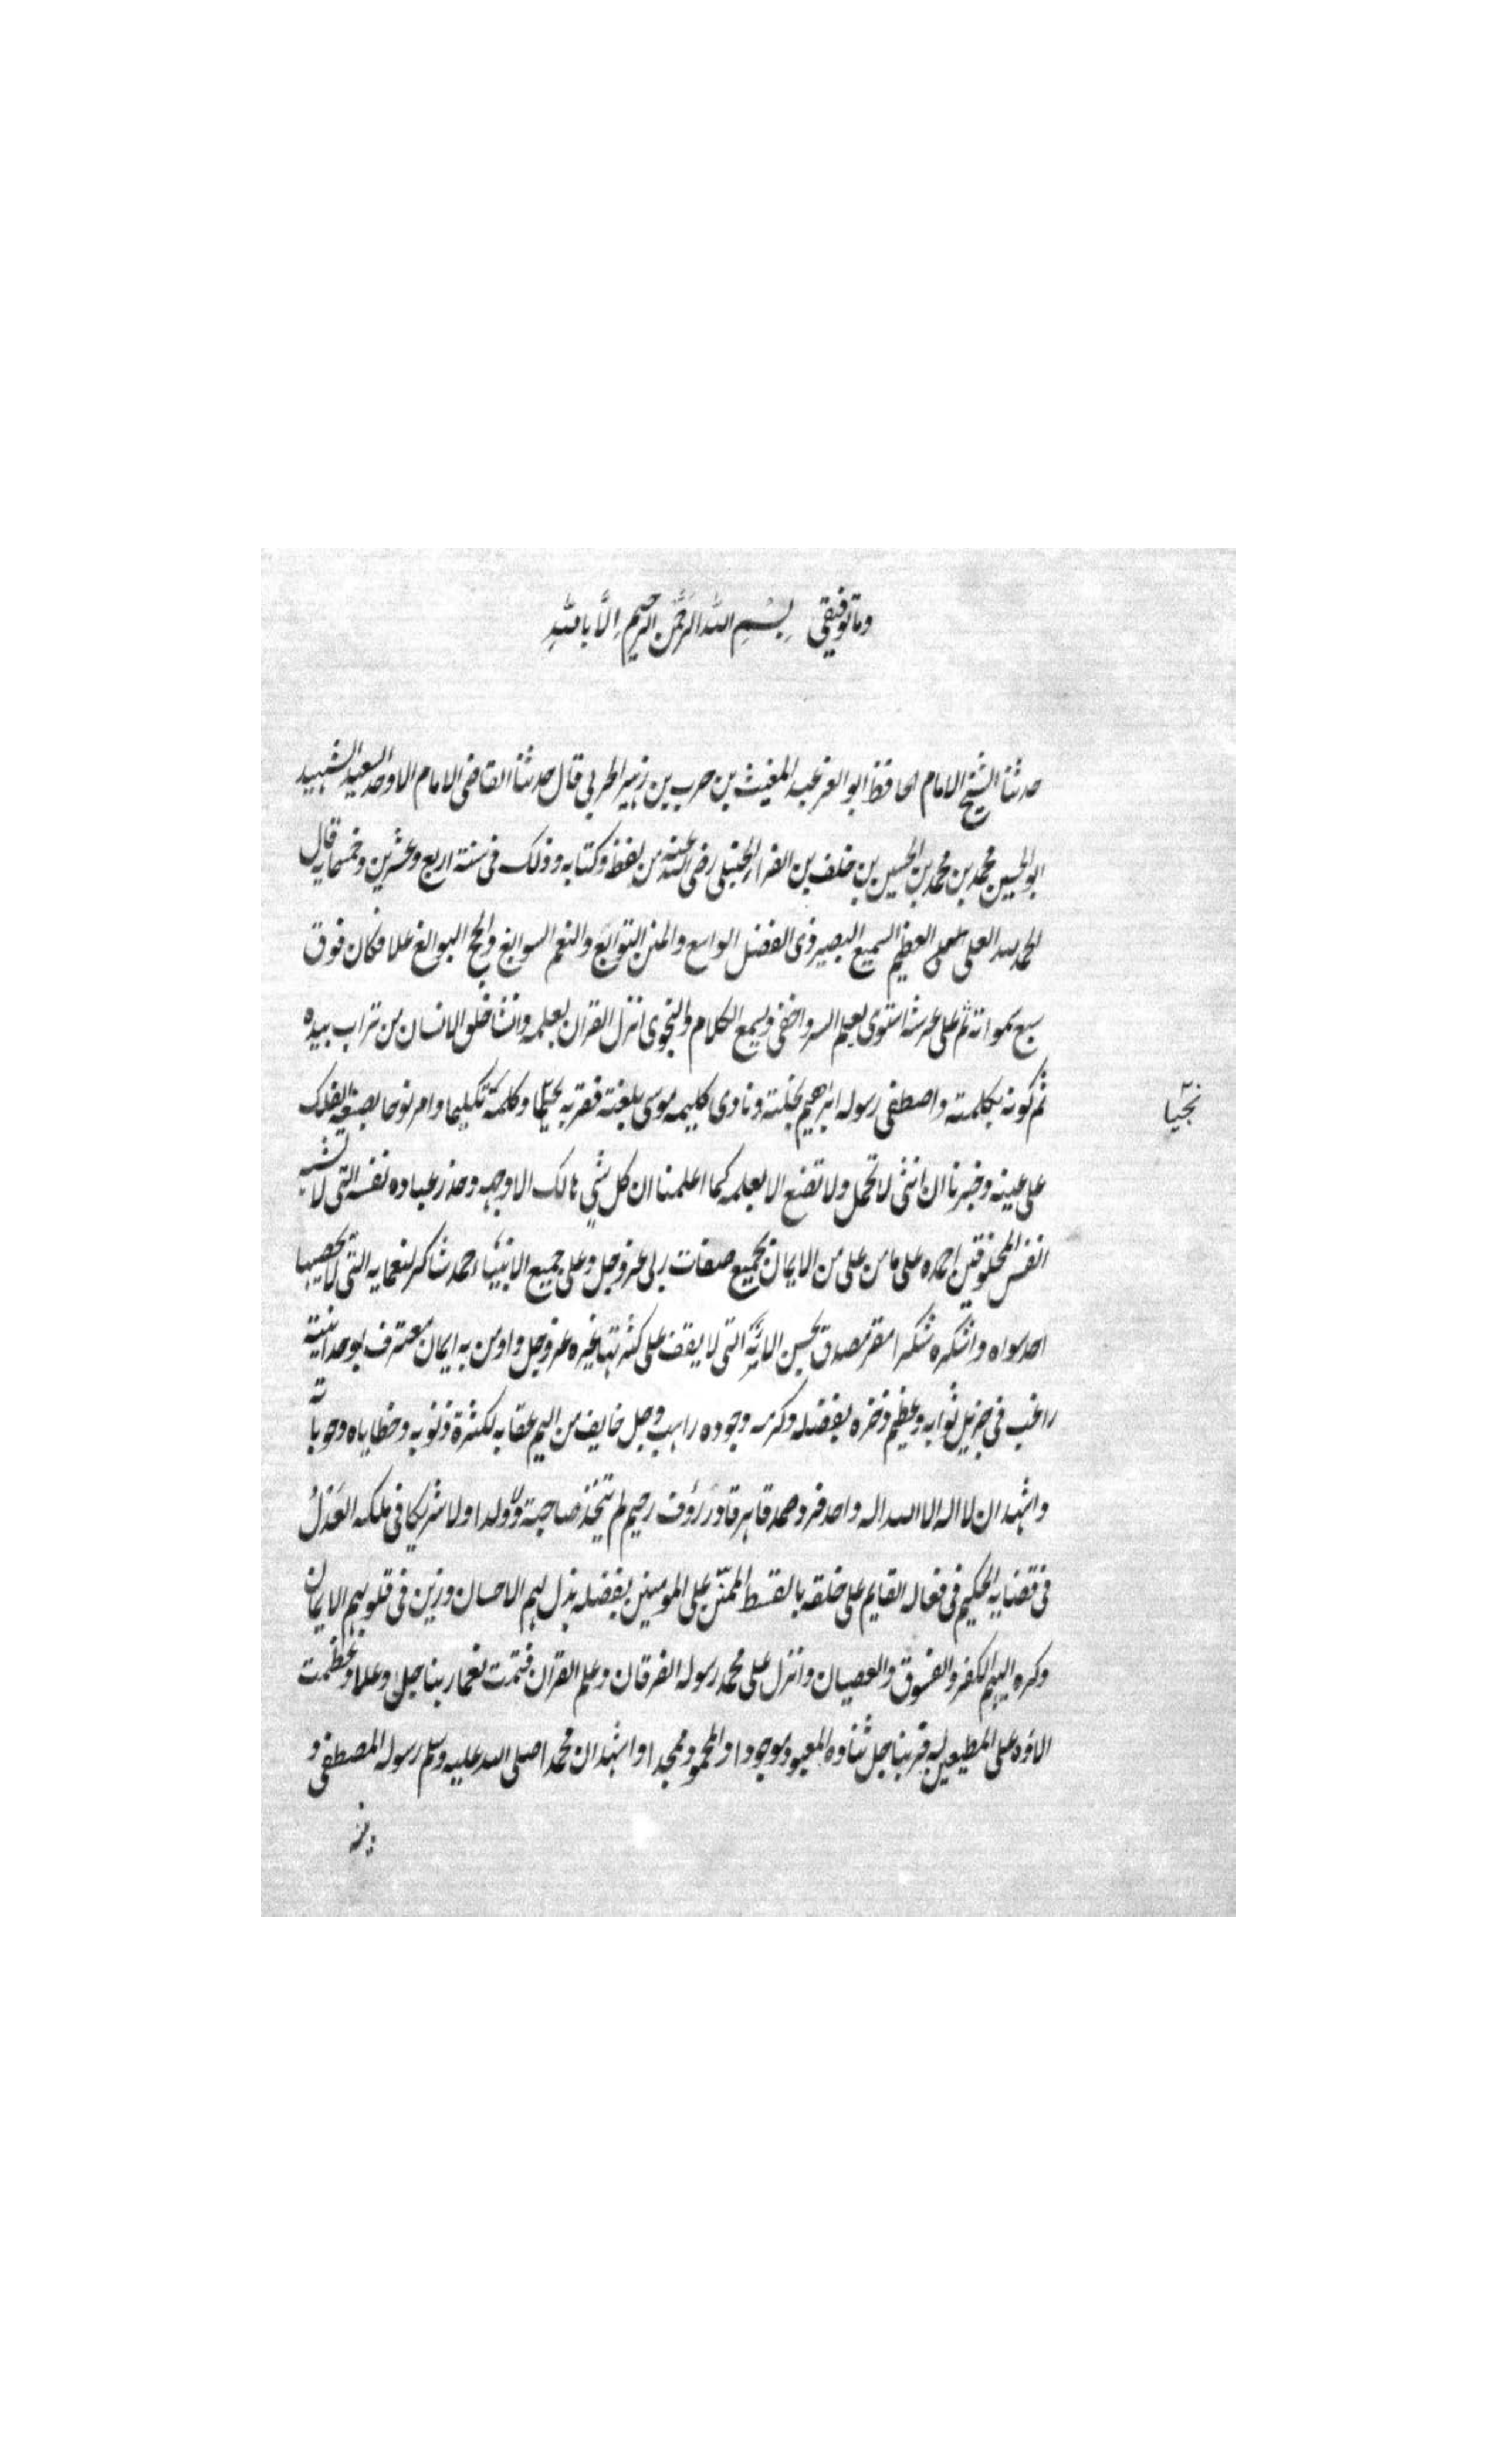 وما توفيقي بِسْمِ الله الرَّحْمٰن الرحيم اِلَّا بِاللهِ
حدثنا الشيخ الامام الحافظ ابو العز عبد المغيث بن حرب بن زهير الحربي قال حدثنا القاضي الامام الاوحد السعيد الشهيد
ابو الحسين محمد بن محمد بن الحسين بن خلف بن الفراء الحنبلي رضي الله عنه من لفظه وكتابه وذلك في سنة اربع وعشرين وخمسمايه قال
الحمد لله العلي العظيم السميع البصير ذي الفضل الواسع والمنن التوابع والنعم السوابغ والحجج البوالغ علا فكان فوق
سبع سمواته ثم على عرشه استوى يعلم السر واخفى ويسمع الكلام والنجوى انزل القران بعلمه وانشا خلق الانسان من تراب بيده
ثم كونه بكلمته واصطفى رسوله ابراهيم بخلته ونادى كليمه موسى بلغته فقربه نجيا وكلمه تكليما وامر نوحا بصنعة الفلك
نجيا
على عينه وخبرنا ان انثى لا تحمل ولا تضع الا بعلمه كما اعلمنا ان كل شي هالك الا وجهه وحذر عباده نفسه التي لا تشبه
انفس المخلوقين احمده على ما من على من الايمان بجميع صفات ربي عز وجل وعلى جميع الانبياء حمد شاكر لنعمايه التي لا يحصيها
احد سواه واشكره شكرا مقر مصدق بحسن الائه التي لا يقف على كثرتها غيره عز وجل واومن به ايمان معترف بوحدانيته
راغب في جزيل ثوابه وعظيم ذخره بفضله وكرمه وجوده راهب وجل خايف من اليم عقابه لكثرة ذنوبه وخطاياه وحوباته
واشهد ان لا اله الا الله اله واحد فرد صمد قاهر قادر رؤف رحيم لم يتخذ صاحبة ولا ولدا ولا شريكا في ملكه العَدْلُ
في قضايه الحكيم في فعاله القايم على خلقه بالقسط الممتن على المومنين بفضله بذل لهم الاحسان وزين في قلوبهم الايمان
وكره اليهم الكفر والفسوق والعصيان وانزل على محمد رسوله الفرقان وعلم القران فتمت نعما ربنا جل وعلا وعظمت
الاؤه على المطيعين له فربنا جل ثناوه المعبود موجودا والمحمود ممجدا واشهد ان محمدا صلى الله عليه وسلم رسوله المصطفى و